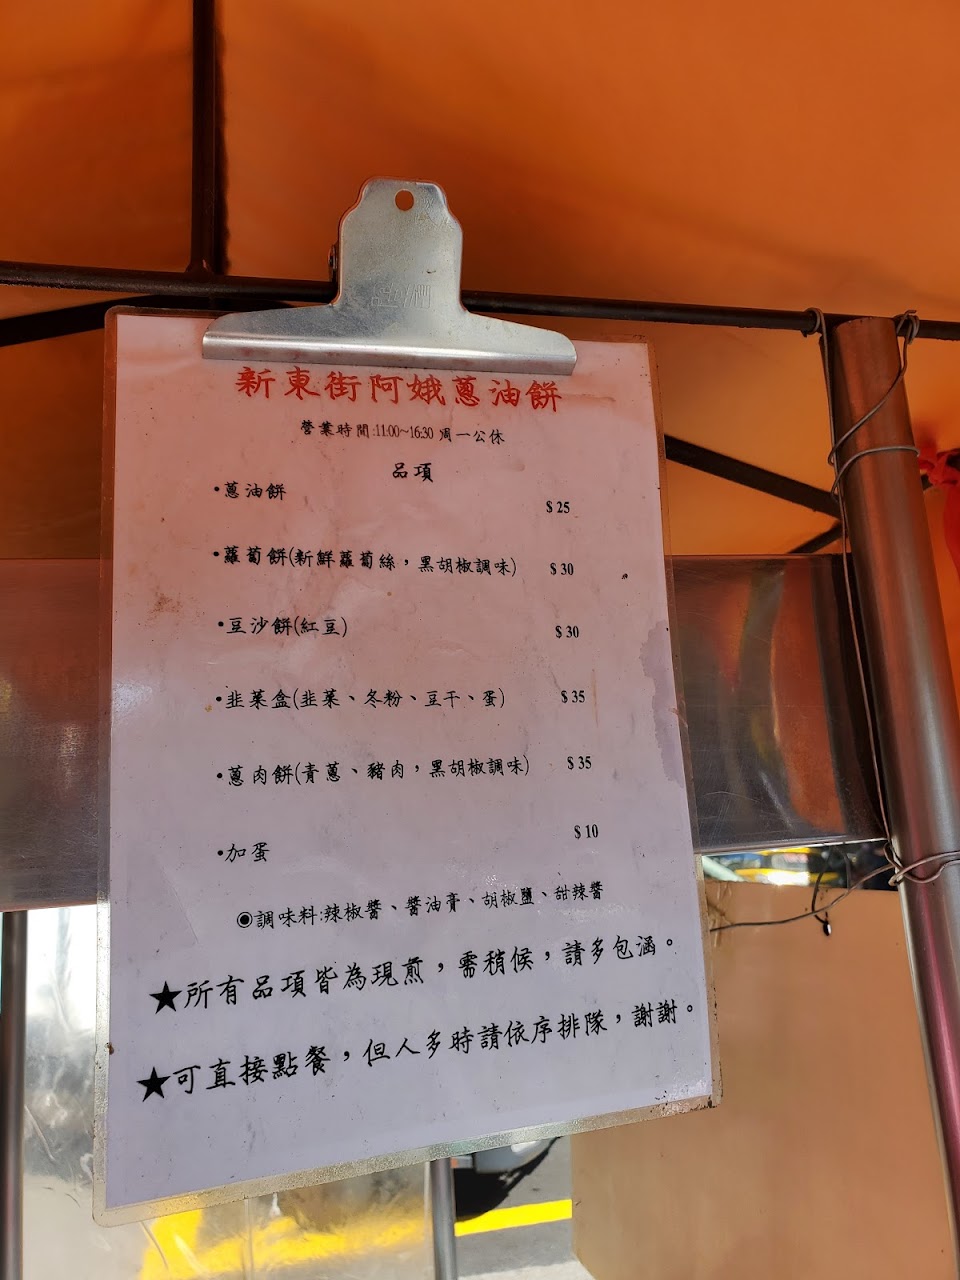 新東街阿娥蔥油餅
營業時間:11:00~16:30 周一公休
品項
•蔥油餅 $25
•蘿蔔餅(新鮮蘿蔔絲，黑胡椒調味) $30
•豆沙餅(紅豆) $30
•韭菜盒(韭菜、冬粉、豆干、蛋) $35
•蔥肉餅(青蔥、豬肉，黑胡椒調味) $35
•加蛋 $10
◉調味料:辣椒醬、醬油膏、胡椒鹽、甜辣醬
★所有品項皆為現煎，需稍候，請多包涵。
★可直接點餐，但人多時請依序排隊，謝謝。